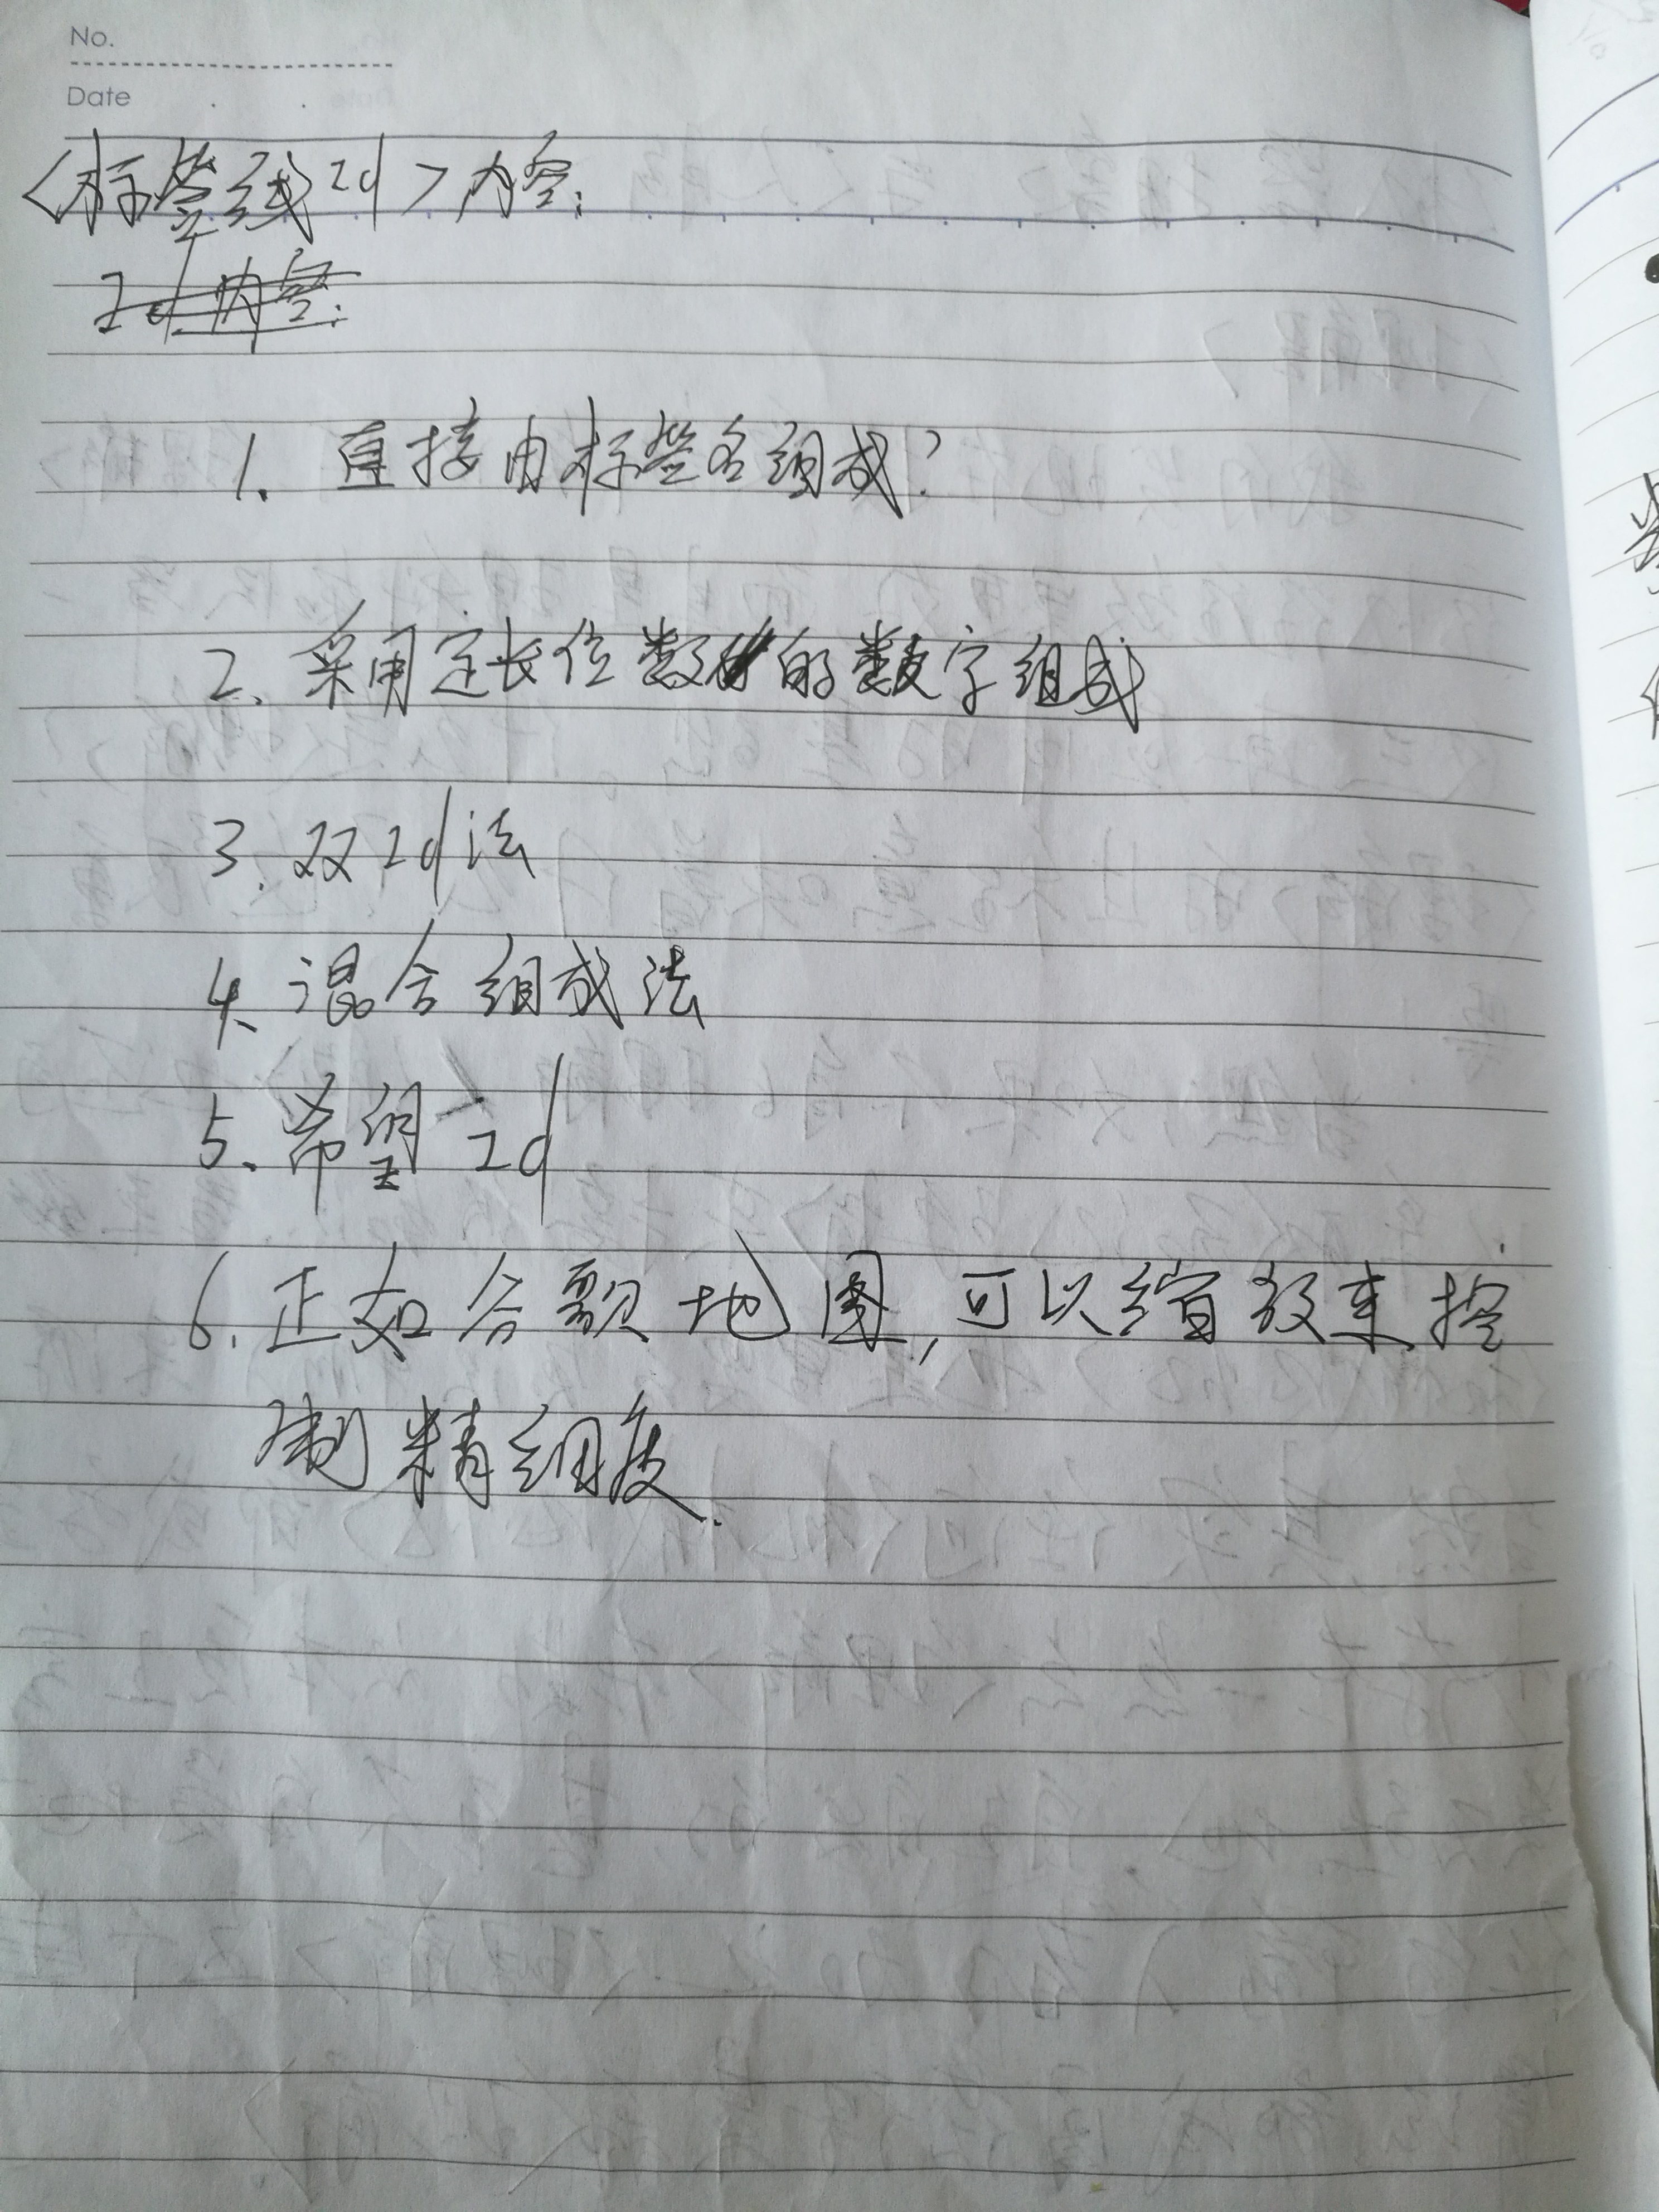 No.
Date
<标签线Id>内容:
Id内容:
1. 直接由标签名组成?
2. 采用定长位数的数字组成
3. 双Id法
4. 混合组成法
5. 希望Id
6. 正如谷歌地图,可以缩放来控
制精细度.